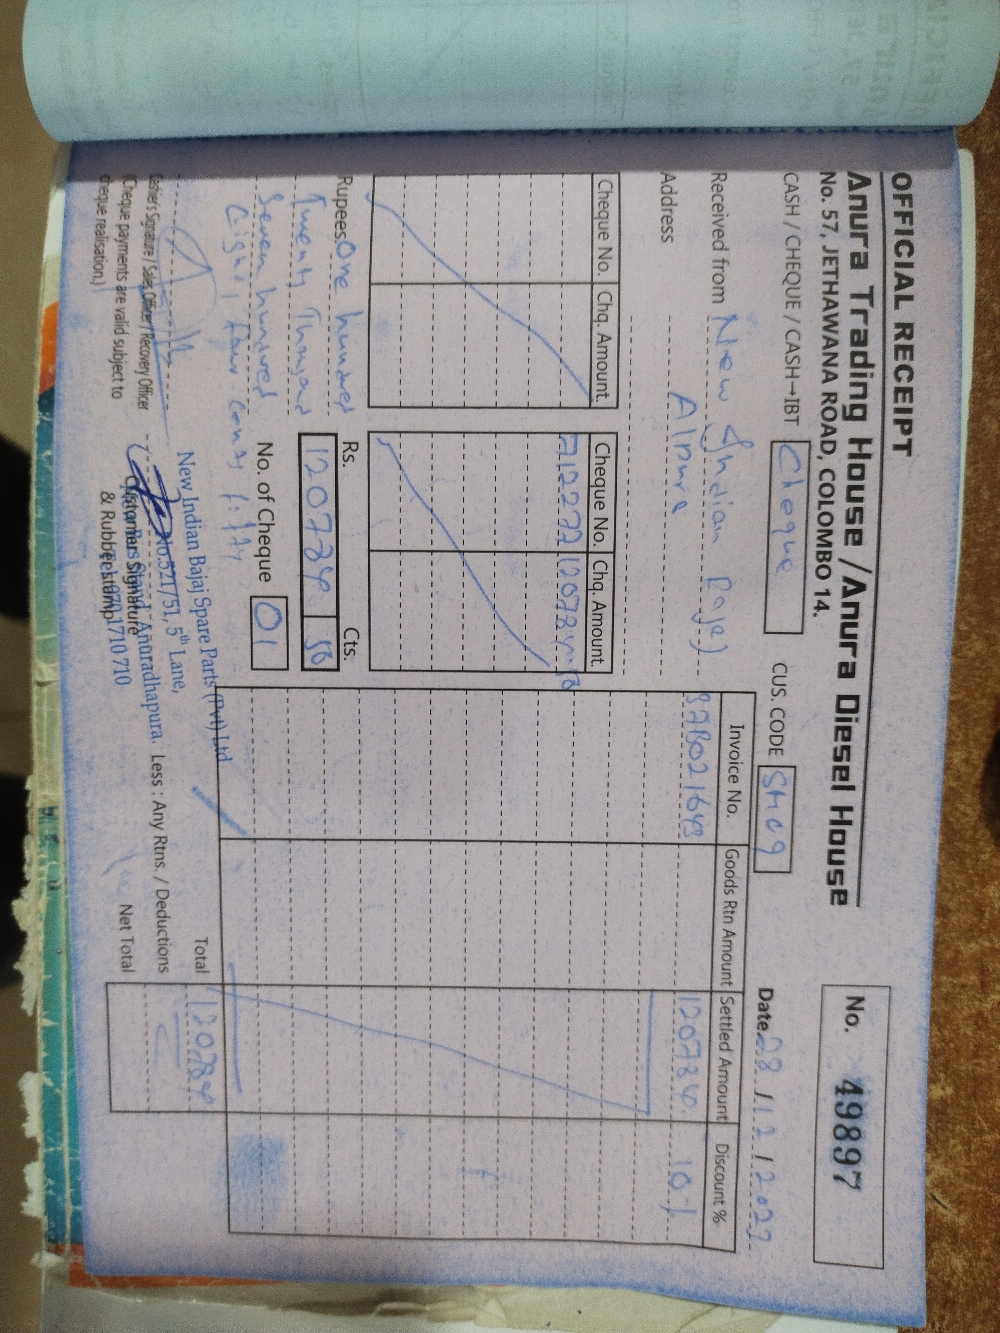 OFFICIAL RECEIPT
Anura Trading House / Anura Diesel House
No. 57, JETHAWANA ROAD, COLOMBO 14.
No. 49897
CASH / CHEQUE / CASH→IBT Cheque
CUS. CODE
Date 28 / 12 / 2022
Received from New Indian (Bajaj)
Address A/pura
Cheque No. Chq. Amount Cheque No. Chq. Amount
712272 120784.50
Invoice No. Goods Rtn Amount Settled Amount Discount %
37B021643 120784 10%
Rupees One hundred
Twenty Thousand
Seven hundred
Eighty Four cents fifty
Rs. Cts.
120784 50
No. of Cheque 01
Total 120784
Less : Any Rtns. / Deductions
Net Total
Cashier's Signature / Sales Officer / Recovery Officer
(Cheque payments are valid subject to
cheque realisation.)
Customer Signature
& Rubber stamp
New Indian Bajaj Spare Parts (Pvt) Ltd
No.521/51, 5th Lane,
Bus Stand, Anuradhapura
Tel: 070 1710 710